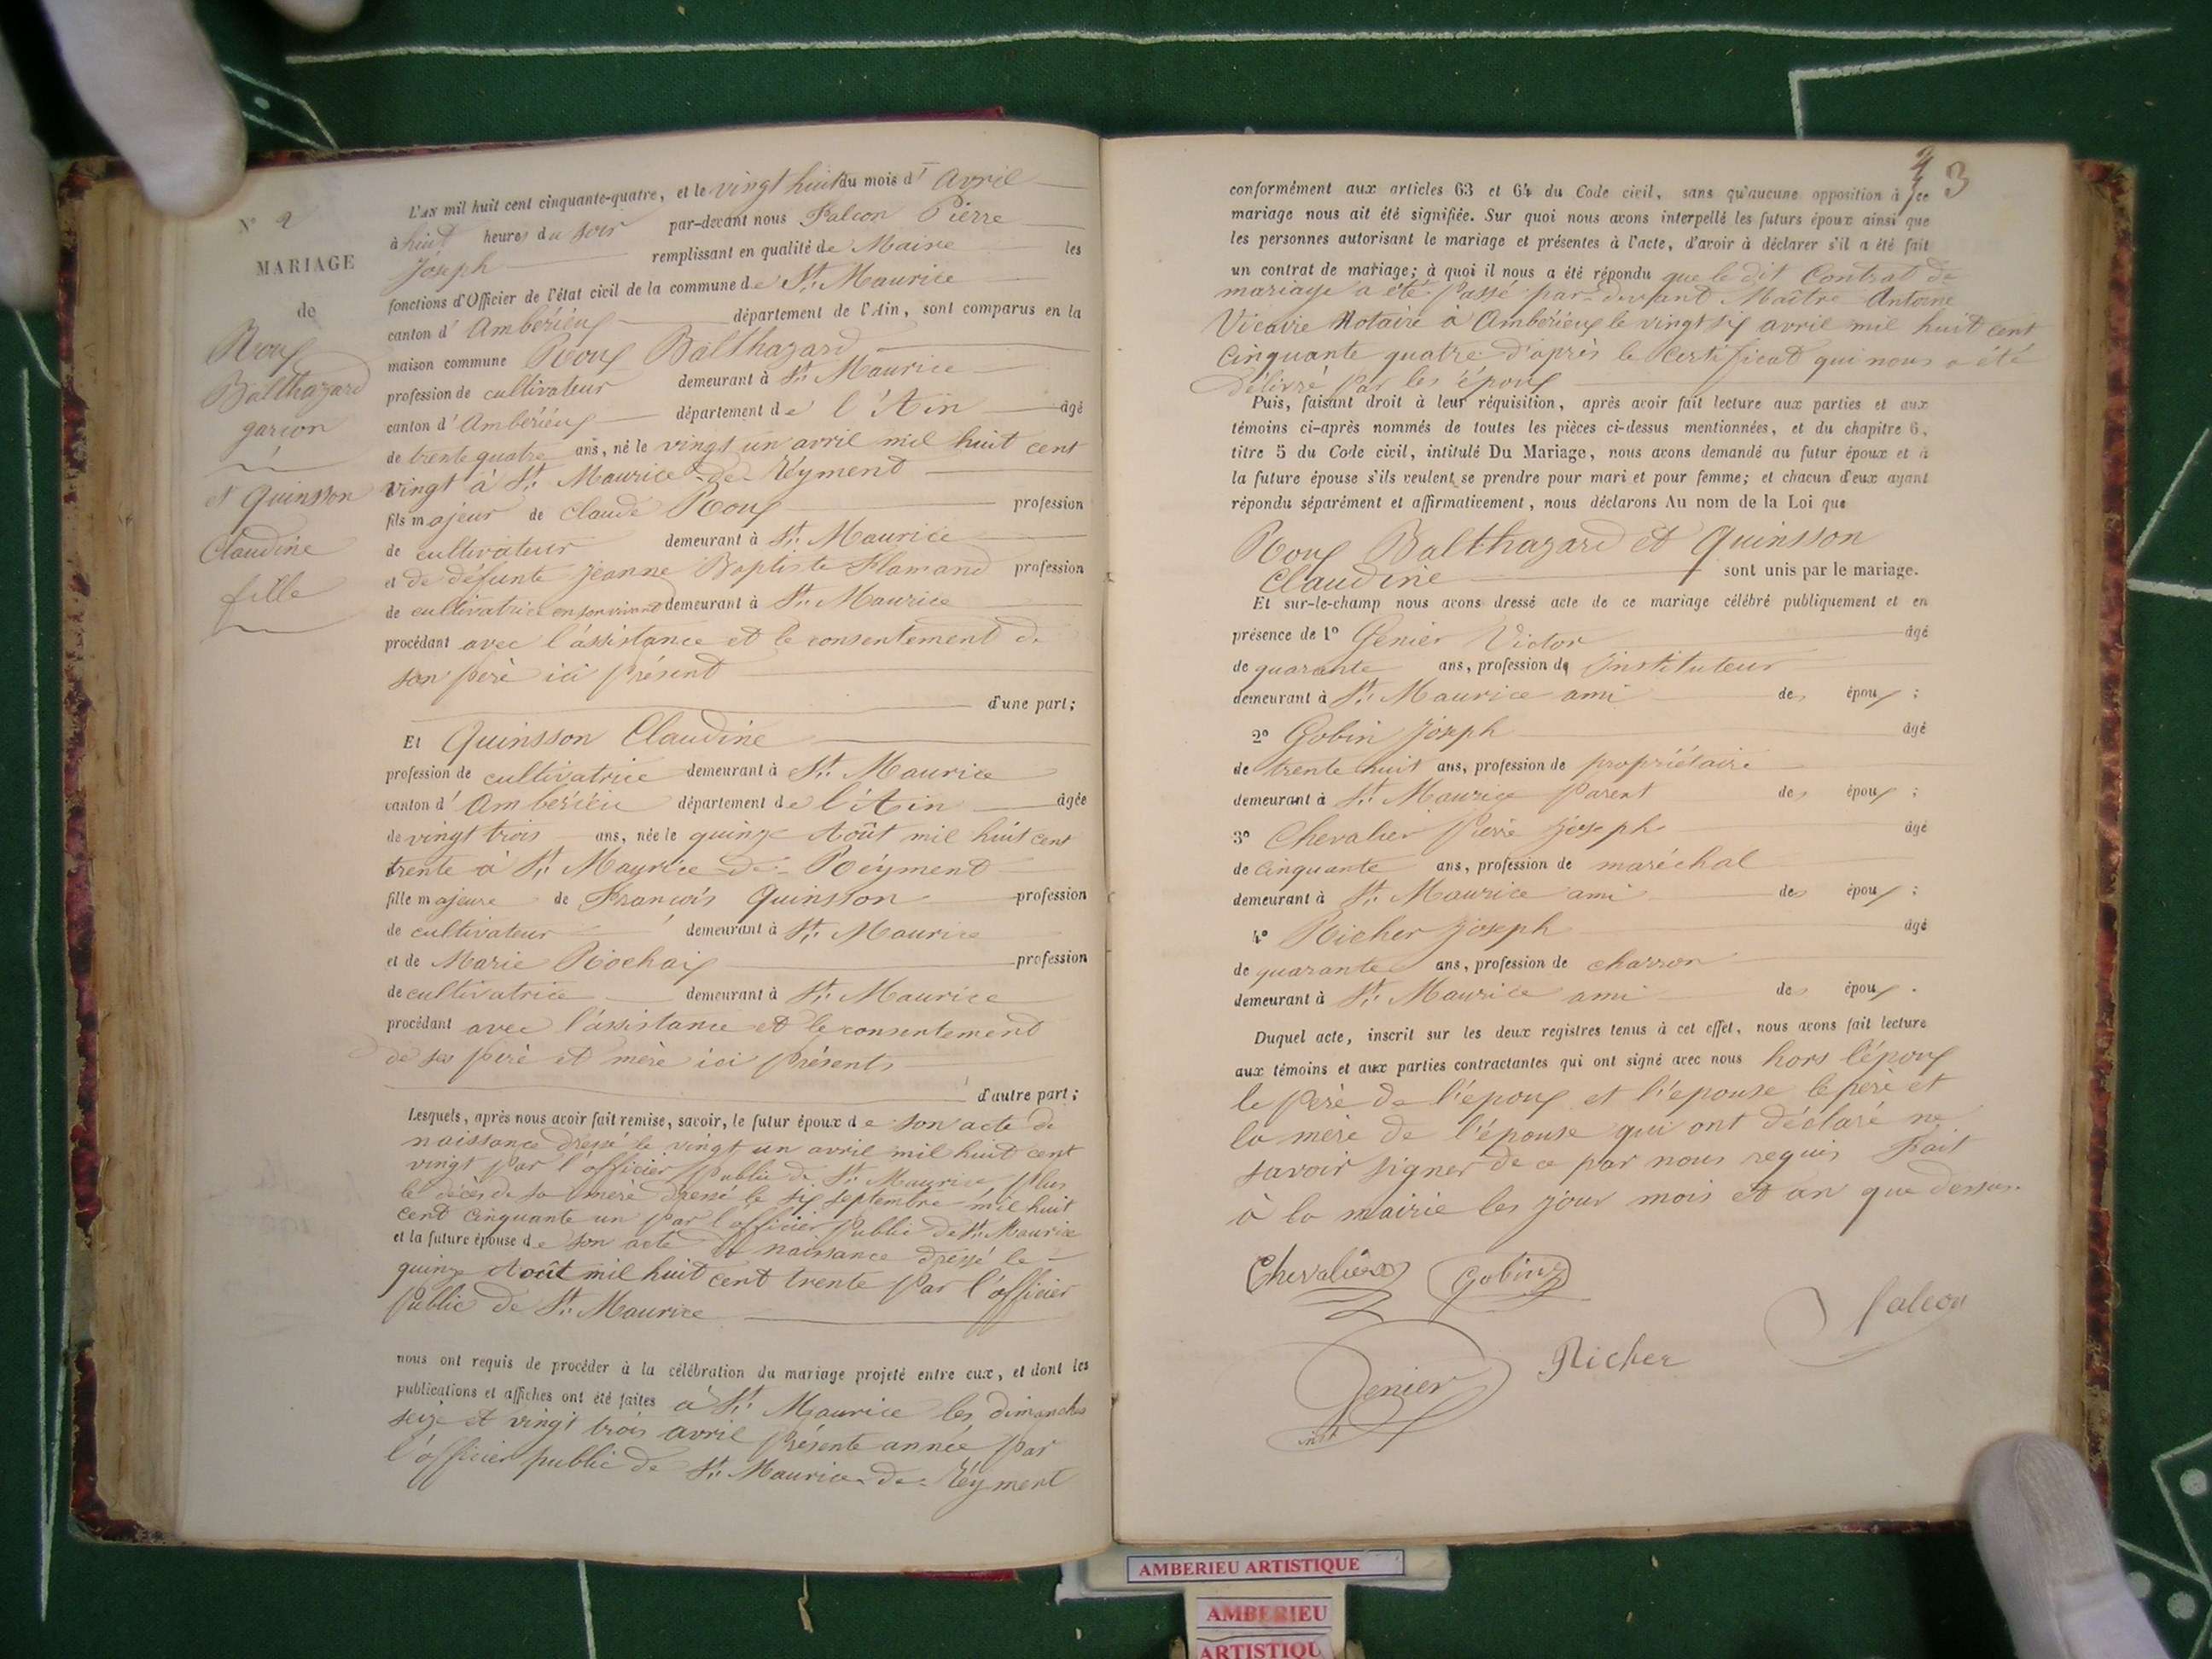 N° 2
MARIAGE
de
Roux
Balthazard
garçon
et Quinsson
Claudine
fille
L'AN mil huit cent cinquante-quatre, et le vingt huit du mois d' Avril
à huit heures du soir par-devant nous Falcon Pierre
Joseph remplissant en qualité de Maire les
fonctions d'Officier de l'état civil de la commune de St. Maurice
canton d' Ambérieux département de l'Ain, sont comparus en la
maison commune Roux Balthazard
profession de cultivateur demeurant à St. Maurice
canton d' Ambérieux département de l'Ain âgé
de trente quatre ans, né le vingt un avril mil huit cent
vingt à St. Maurice-de-Réyment
fils majeur de Claude Roux profession
de cultivateur demeurant à St. Maurice
et de défunte Jeanne Baptiste Flamand profession
de cultivatrice en son vivant demeurant à St. Maurice
procédant avec l'assistance et le consentement de
son père ici présent
d'une part;
Et Quinsson Claudine
profession de cultivatrice demeurant à St. Maurice
canton d' Ambérieu département de l'Ain âgée
de vingt trois ans, née le quinze Août mil huit cent
trente à St. Maurice de-Réyment
fille majeure de François Quinsson profession
de cultivateur demeurant à St. Maurice
et de Marie Rochaix profession
de cultivatrice demeurant à St. Maurice
procédant avec l'assistance et le consentement
de ses père et mère ici présents
d'autre part;
Lesquels, après nous avoir fait remise, savoir, le futur époux de son acte de
naissance dressé le vingt un avril mil huit cent
vingt par l'officier public de St. Maurice plus
le décès de sa mère dressé le six septembre mil huit
cent cinquante un par l'officier public de St. Maurice
et la future épouse de son acte de naissance dressé le
quinze Août mil huit cent trente par l'officier
public de St. Maurice
nous ont requis de procéder à la célébration du mariage projeté entre eux, et dont les
publications et affiches ont été faites à St. Maurice les dimanches
seize et vingt trois avril présente année par
l'officier public de St. Maurice-de-Réyment
3
conformément aux articles 63 et 64 du Code civil, sans qu'aucune opposition à ce
mariage nous ait été signifiée. Sur quoi nous avons interpellé les futurs époux ainsi que
les personnes autorisant le mariage et présentes à l'acte, d'avoir à déclarer s'il a été fait
un contrat de mariage; à quoi il nous a été répondu que le dit Contrat de
mariage a été passé par-devant Maître Antoine
Vicaire Notaire à Ambérieux le vingt six avril mil huit cent
cinquante quatre d'après le certificat qui nous a été
délivré par les époux
Puis, faisant droit à leur réquisition, après avoir fait lecture aux parties et aux
témoins ci-après nommés de toutes les pièces ci-dessus mentionnées, et du chapitre 6,
titre 5 du Code civil, intitulé Du Mariage, nous avons demandé au futur époux et à
la future épouse s'ils veulent se prendre pour mari et pour femme; et chacun d'eux ayant
répondu séparément et affirmativement, nous déclarons Au nom de la Loi que
Roux Balthazard et Quinsson
Claudine sont unis par le mariage.
Et sur-le-champ nous avons dressé acte de ce mariage célébré publiquement et en
présence de 1° Genier Victor âgé
de quarante ans, profession de Instituteur
demeurant à St. Maurice ami des époux;
2° Gobin Joseph âgé
de trente huit ans, profession de propriétaire
demeurant à St. Maurice parent des époux;
3° Chevalier Pierre Joseph âgé
de cinquante ans, profession de maréchal
demeurant à St. Maurice ami des époux;
4° Richer Joseph âgé
de quarante ans, profession de charron
demeurant à St. Maurice ami des époux.
Duquel acte, inscrit sur les deux registres tenus à cet effet, nous avons fait lecture
aux témoins et aux parties contractantes qui ont signé avec nous hors l'époux
le père de l'époux et l'épouse le père et
la mère de l'épouse qui ont déclaré ne
savoir signer de ce par nous requis Fait
à la mairie les jour mois et an que dessus
Chevalier Gobin
falcon
Richer
Genier
inst
AMBERIEU ARTISTIQUE
AMBERIEU
ARTISTIQU